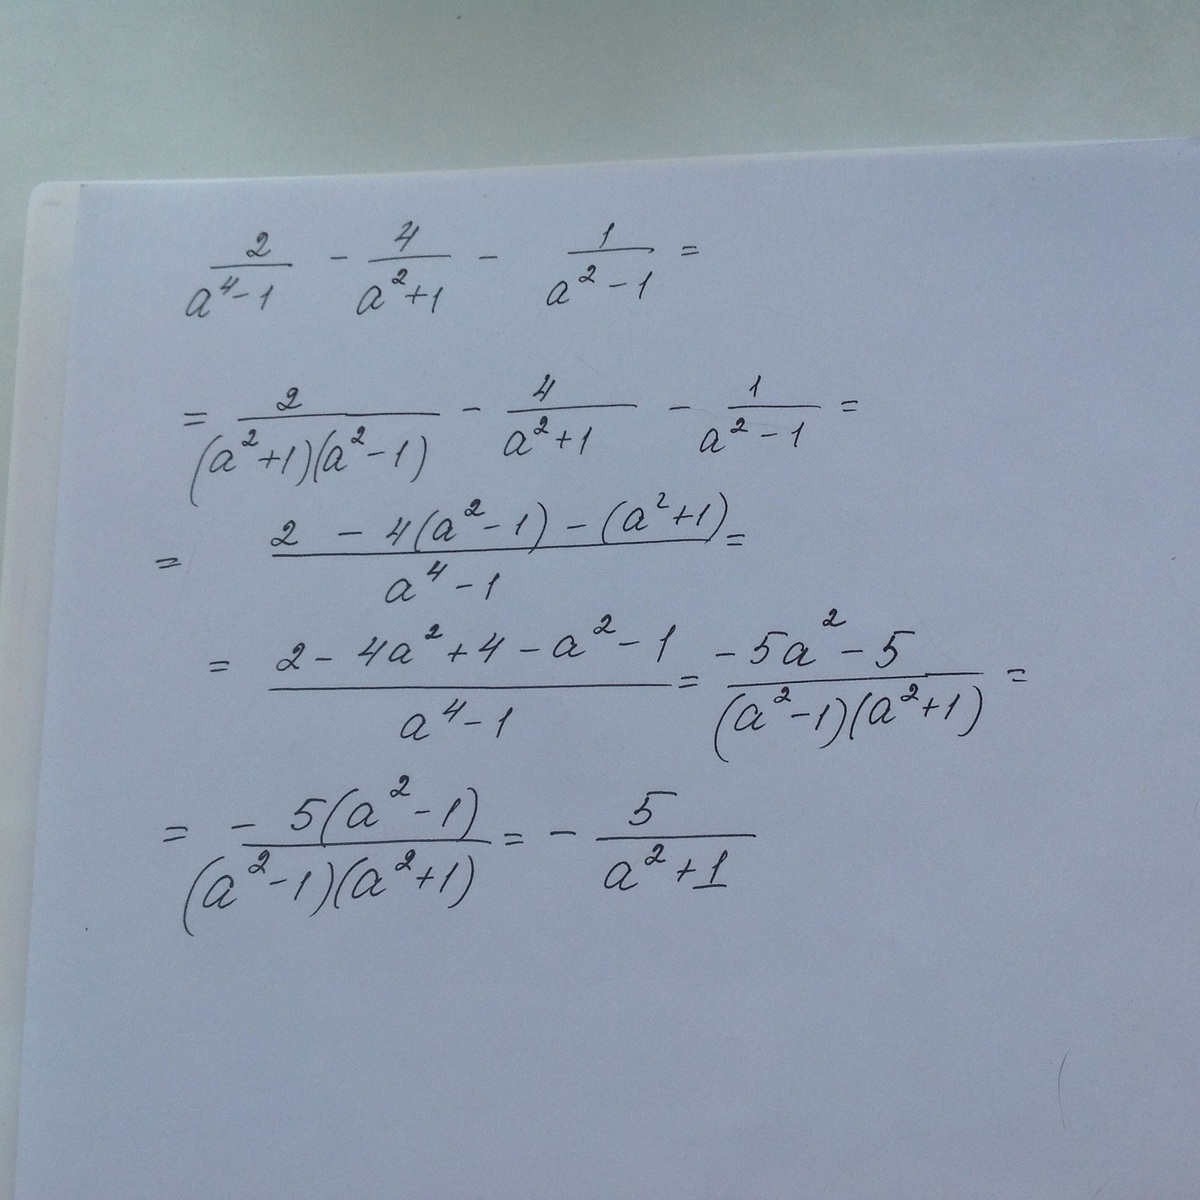 2/(a⁴-1) - 4/(a²+1) - 1/(a²-1) =
= 2/((a²+1)(a²-1)) - 4/(a²+1) - 1/(a²-1) =
= (2 - 4(a²-1) - (a²+1))/(a⁴-1) =
= (2 - 4a² + 4 - a² - 1)/(a⁴-1) = (-5a² - 5)/((a²-1)(a²+1)) =
= -5(a²-1)/((a²-1)(a²+1)) = - 5/(a²+1)